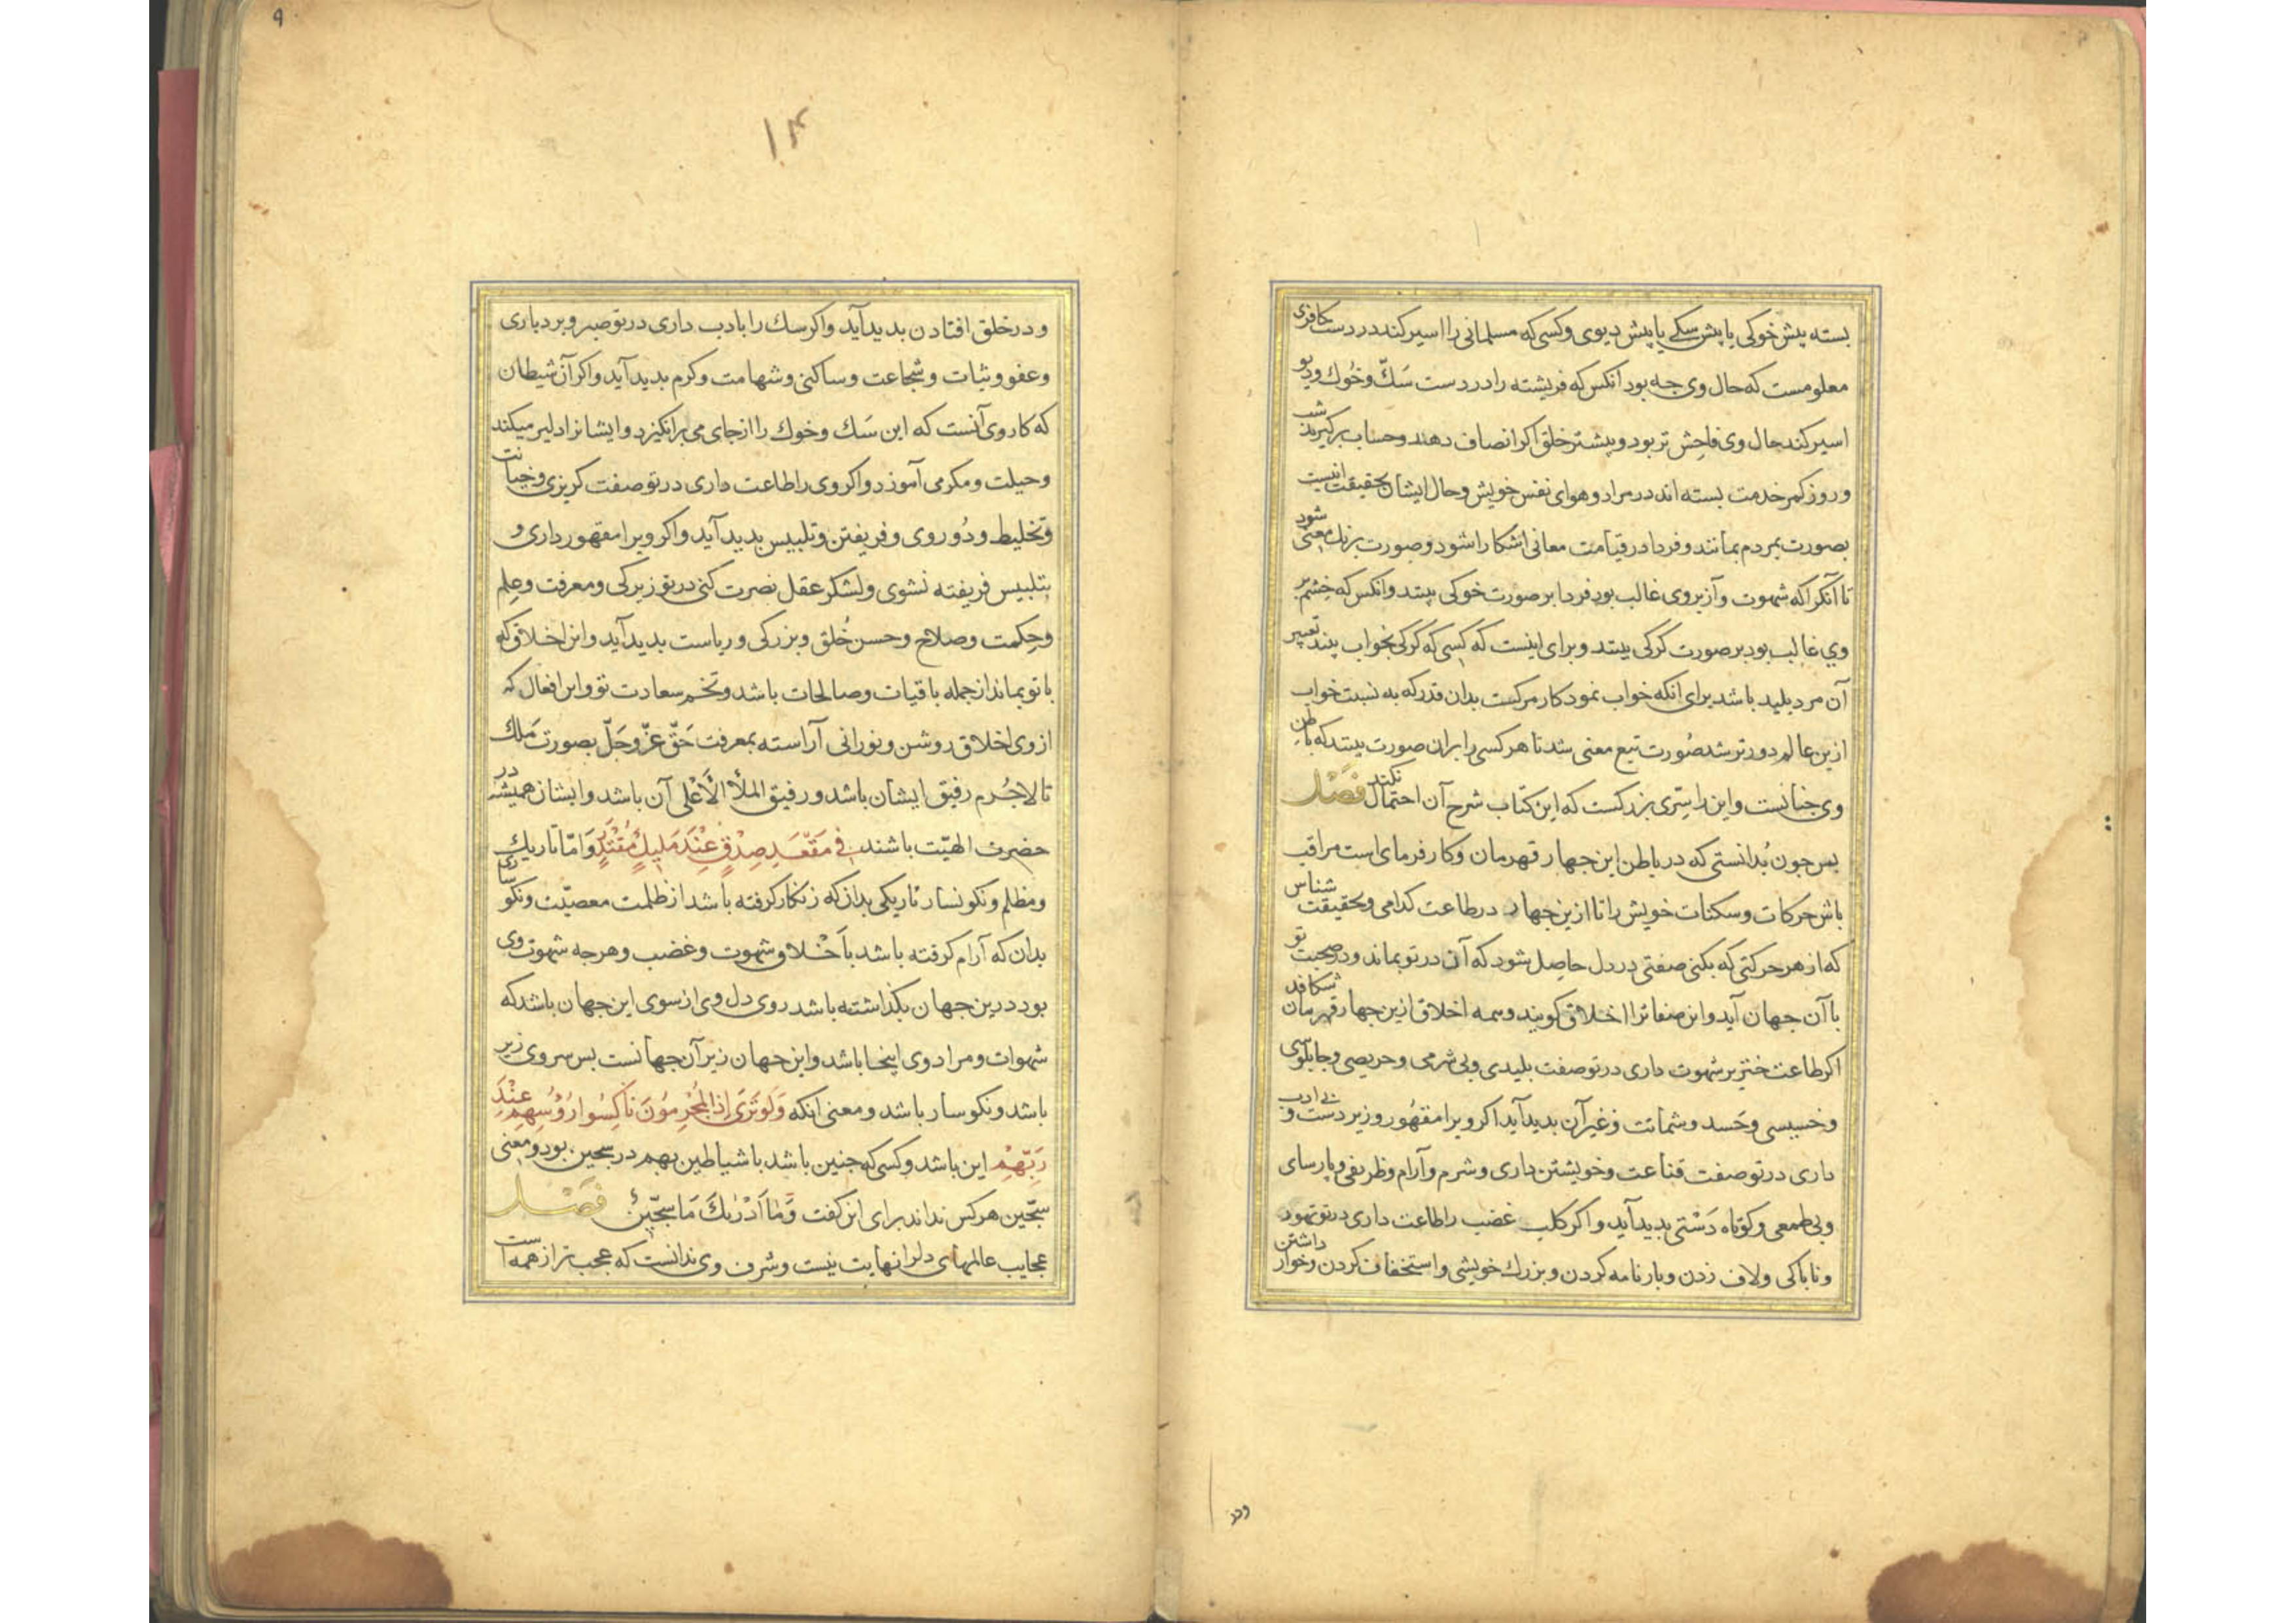 بسته پیش خوکی یا پیش سکے یا پیش دیوی وکسی که مسلمانی را اسیر کند در دست کافری
معلومست که حال وی جه بود آنکس که فریشته را در دست سَکّ وخُوك ودیو
اسیر کند حال وی فاحِش تر بود وبیشتر خلق اکر انصاف دهند وحساب برکیرند شب
وروز کمر خدمت بسته اند در مراد وهوای نفس خویش وحال ایشان بحقیقت اینست
بصورت بمردم بمانند وفردا در قیامت معانی اشکارا شود وصورت برنك معنی شود
تا آنکرا که شهوت وآز بروی غالب بود فردا بر صورت خوکی بینند وانکس که خشم بر
وی غالب بود بر صورت کرکی بینند وبرای اینست که کسی که کرکی بخواب بیند تعبیر
آن مرد پلید باشد برای انکه خواب نمودکار مرکست بدان قدر که به نسبت خواب
ازین عالم دورتر شد صُورت تبع معنی شد تا هر کسی را بران صورت بینند که باطن
وی جنانست واین را سِرّی بزرکست که این کتاب شرح آن احتمال نکند فَصْل
پس جون بُدانستی که در باطن این جهار قهرمان وکارفرمای است مراقب
باش حرکات وسکنات خویش را تا ازین جهار در طاعت کدامی وبحقیقت شناس
که از هر حرکتی که بکنی صفتی در دل حاصِل شود که آن در تو بماند ودر صحبت تو
با آن جهان آید واین صفاترا اخلاق کویند وهمه اخلاق ازین جهار قهرمان شکافد
اکر طاعت خنزیر شهوت داری در تو صفت بلیدی وبی شرمی وحریصی وجابلوسی
وخسیسی وحَسد وشماتت وغیر آن بدید آید اکر ویرا مقهُور وزیر دست وبا ادب
داری در تو صفت قناعت وخویشتن داری وشرم وآرام وظریفی وپارسای
وبی طمعی وکوتاه دَسْتی بدید آید واکر کلب غضب را طاعت داری در تو تهور
وناباکی ولاف زدن وبارنامه کردن وبزرك خویشی واستخفاف کردن وخوار داشتن
ودر
۹
۱۴
ودر خلق افتادن بدید آید واکر سك را بادب داری در تو صبر وبردباری
وعفو وثبات وشجاعت وساکنی وشهامت وکرم بدید آید واکر آن شیطان
که کار وی آنست که این سَك وخوك را از جای می برانکیزد وایشانرا دلیر میکند
وحیلت ومکر می آموزد واکر وی را طاعت داری در تو صفت کربزی وخیانت
وتخلیط ودُو روی وفریفتن وتلبیس بدید آید واکر ویرا مقهور داری و
بتلبیس فریفته نشوی ولشکر عقل نصرت کنی در تو زیرکی ومعرفت وعِلم
وحِکمت وصلاح وحسن خُلق وبزرکی وریاست بدید آید واین اخلاق که
با تو بماند از جمله باقیات وصالحات باشد وتخم سعادت تو واین افعال که
از وی اخلاق روشن ونورانی آراسته بمعرفت حَقّ عزّ وجَلّ بصورت مَلك
تا لاجُرم رفیق ایشان باشد ورفیق الملأ الأَعْلی آن باشد وایشان همیشه در
حضرت الهیّت باشند فِی مَقْعَدِ صِدْقٍ عِنْدَ مَلِیكٍ مُقْتَدِرٍ وَامّا تاریك
ومظلم ونکونسار تاریکی بدان که زنکار کرفته باشد از ظلمت معصیّت ونکوساری
بدان که آرام کرفته باشد با اَخْلاق شهوت وغضب وهرجه شهوت وی
بود درین جهان بکذاشته باشد روی دل وی از سوی این جهان باشد که
شهوات ومراد وی اینجا باشد واین جهان زیر آن جهانست پس سر وی زیر
باشد ونکوسار باشد ومعنی انکه وَلَوْ تَرَی إِذِ الْمُجْرِمُونَ نَاکِسُوا رُؤُسِهِمْ عِنْدَ
رَبِّهِمْ این باشد وکسی که جنین باشد با شیاطین بهم در سجین بود ومعنی
سجّین هر کس نداند برای این کفت وَمٰا أَدْرٰیكَ مَا سِجّینٌ فَصْل
عجایب عالمهای دلرا نهایت نیست وشرف وی بدانست که عجب تر از همه است